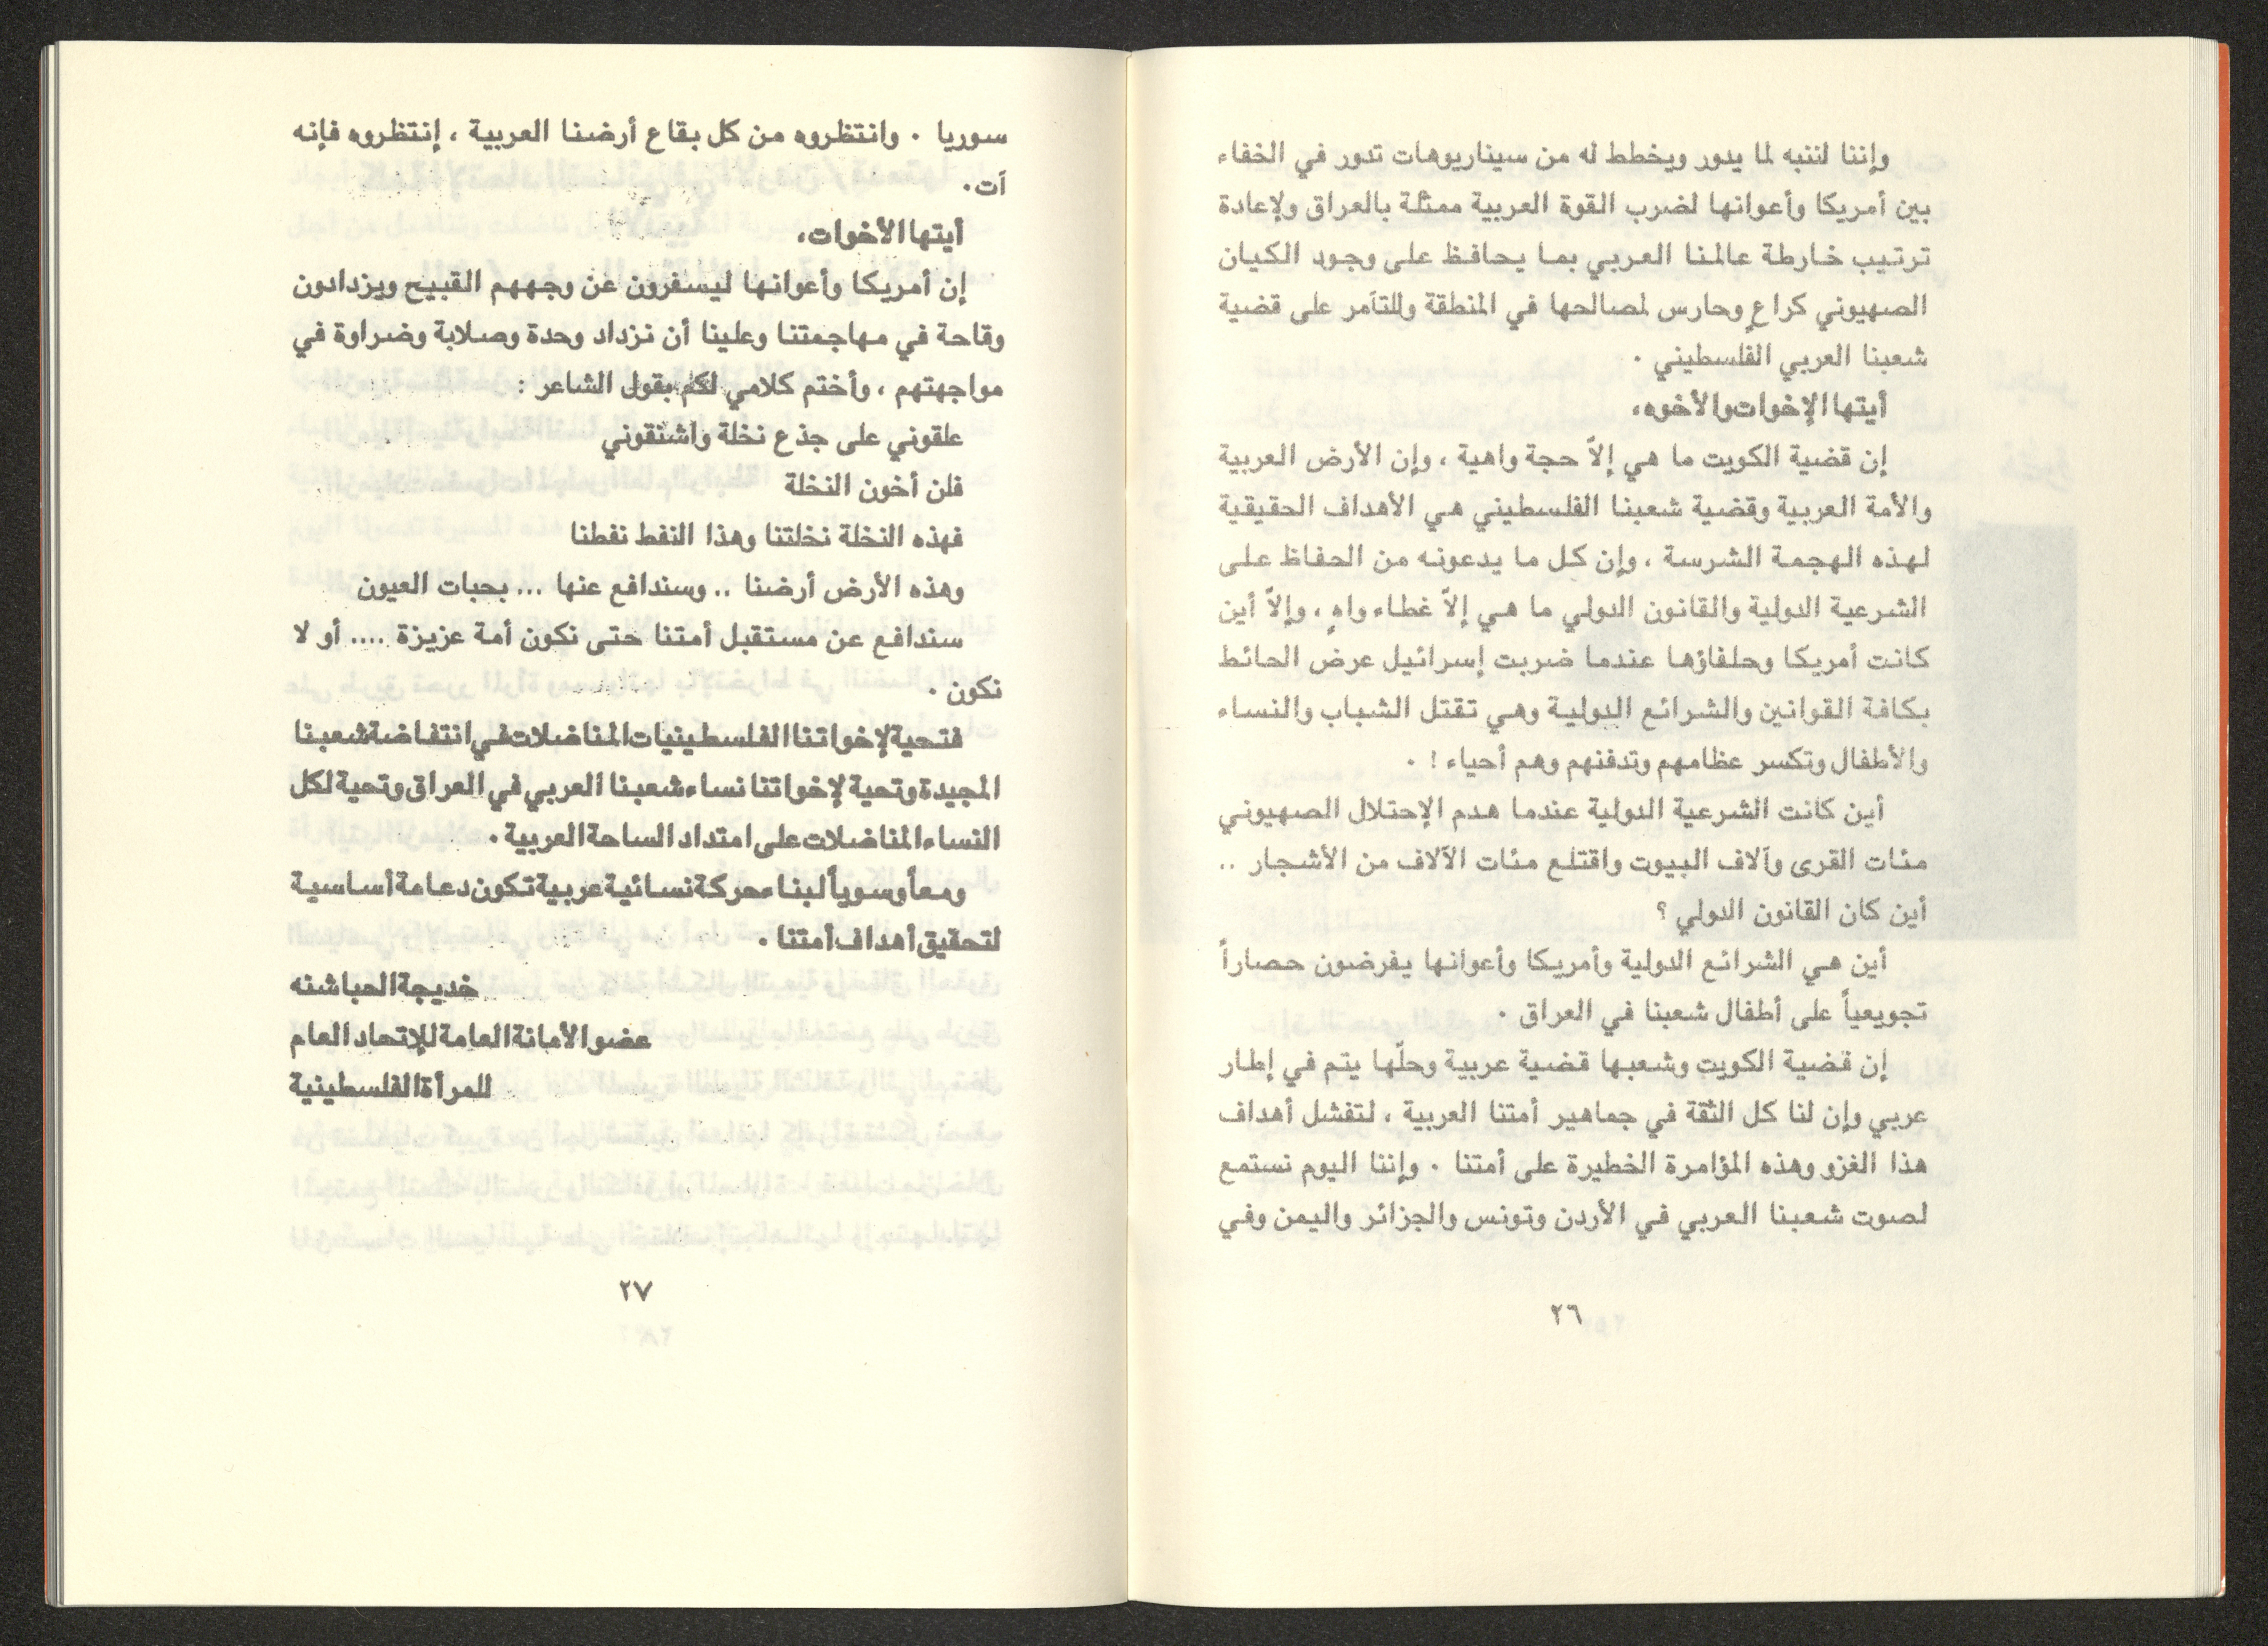 وإننا لننبه لما يدور ويخطط له من سيناريوهات تدور في الخفاء
بين أمريكا وأعوانها لضرب القوة العربية ممثلة بالعراق ولإعادة
ترتيب خارطة عالمنا العربي بما يحافظ على وجود الكيان
الصهيوني كراعٍ وحارس لمصالحها في المنطقة وللتآمر على قضية
شعبنا العربي الفلسطيني .
أيتها الإخوات والأخوه،
إن قضية الكويت ما هي إلاّ حجة واهية ، وإن الأرض العربية
والأمة العربية وقضية شعبنا الفلسطيني هي الأهداف الحقيقية
لهذه الهجمة الشرسة ، وإن كل ما يدعونه من الحفاظ على
الشرعية الدولية والقانون الدولي ما هي إلاّ غطاء واهٍ ، وإلاّ أين
كانت أمريكا وحلفاؤها عندما ضربت إسرائيل عرض الحائط
بكافة القوانين والشرائع الدولية وهي تقتل الشباب والنساء
والأطفال وتكسر عظامهم وتدفنهم وهم أحياء ! .
أين كانت الشرعية الدولية عندما هدم الإحتلال الصهيوني
مئات القرى وآلاف البيوت واقتلع مئات الآلاف من الأشجار ..
أين كان القانون الدولي ؟
أين هي الشرائع الدولية وأمريكا وأعوانها يفرضون حصاراً
تجويعياً على أطفال شعبنا في العراق .
إن قضية الكويت وشعبها قضية عربية وحلّها يتم في إطار
عربي وإن لنا كل الثقة في جماهير أمتنا العربية ، لتفشل أهداف
هذا الغزو وهذه المؤامرة الخطيرة على أمتنا . وإننا اليوم نستمع
لصوت شعبنا العربي في الأردن وتونس والجزائر واليمن وفي
٢٦
سوريا . وانتظروه من كل بقاع أرضنا العربية ، إنتظروه فإنه
آت.
أيتها الأخوات،
إن أمريكا وأعوانها ليسفرون عن وجههم القبيح ويزدادون
وقاحة في مهاجمتنا وعلينا أن نزداد وحدة وصلابة وضراوة في
مواجهتهم ، وأختم كلامي لكم بقول الشاعر :
علقوني على جذع نخلة واشنقوني
فلن أخون النخلة
فهذه النخلة نخلتنا وهذا النفط نفطنا
وهذه الأرض أرضنا .. وسندافع عنها ... بحبات العيون
سندافع عن مستقبل أمتنا حتى نكون أمة عزيزة .... أو لا
نكون .
فتحية لإخواتنا الفلسطينيات المناضلات في انتفاضة شعبنا
المجيدة وتحية لإخواتنا نساء شعبنا العربي في العراق وتحية لكل
النساء المناضلات على امتداد الساحة العربية .
ومعاً وسوياً لبناء حركة نسائية عربية تكون دعامة أساسية
لتحقيق أهداف أمتنا .
خديجة الحباشنه
عضو الأمانة العامة للإتحاد العام
للمرأة الفلسطينية
٢٧